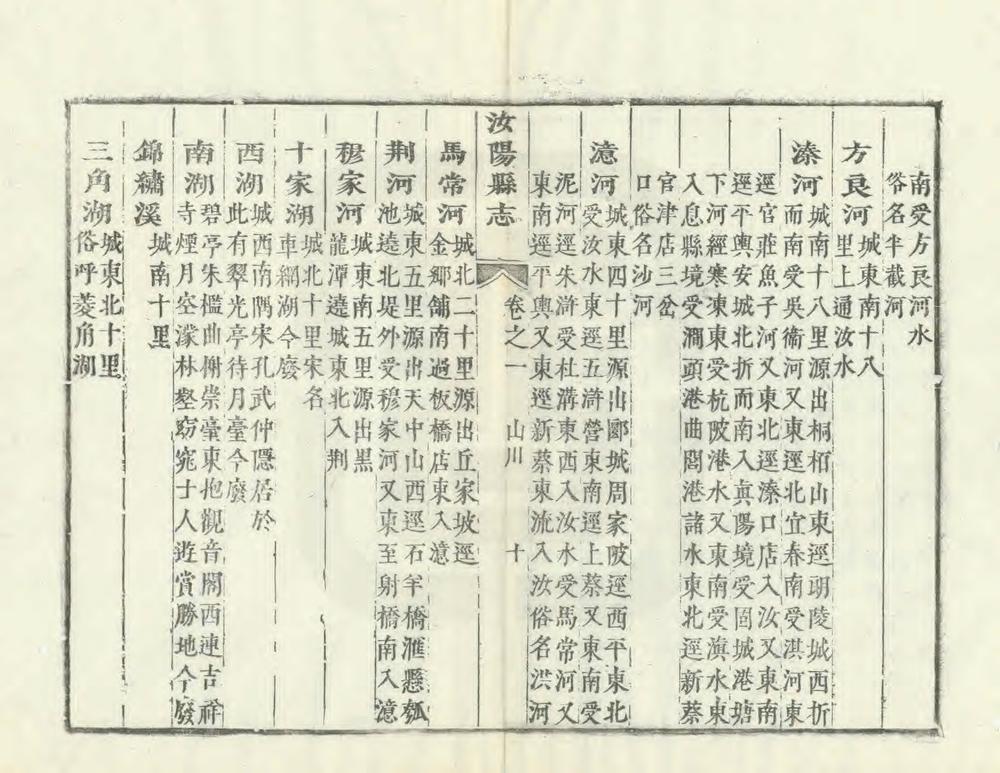 南受方良河水
俗名半截河
方良河城東南十八
里上通汝水
溱河城南十八里源出桐柏山東逕朗陵城西折
而南受吳衞河又東逕北宜春南受淇河東
逕官莊魚子河又東北逕溱口店入汝又東南
逕平輿安城北折而南入眞陽境受固城港塘
下河經寒凍東受杭陂港水又東南受滇水東
入息縣境受澗頭港曲閭港諸水東北逕新蔡
官津店三岔
口俗名沙河
澺河城東四十里源出郾城周家陂逕西平東北
受汝水東逕五滸營東南逕上蔡又東南受
泥河逕朱滸受杜溝東西入汝水受馬常河又
東南逕平輿又東逕新蔡東流入汝俗名洪河
汝陽縣志 卷之一 山川 十
馬常河城北二十里源出丘家坡逕
金鄉舖南過板橋店東入澺
荆河城東五里源出天中山西逕石羊橋滙懸瓠
池遶北堤外受穆家河又東至射橋南入澺
穆家河城東南五里源出黑
龍潭遶城東北入荆
十家湖城北十里宋名
車綱湖今廢
西湖城西南隅宋孔武仲隱居於
此有翠光亭待月臺今廢
南湖碧亭朱檻曲榭崇臺東抱觀音閣西連吉祥
寺煙月空濛林壑窈窕士人遊賞勝地今廢
錦繡溪城南十里
三角湖城東北十里
俗呼菱角湖